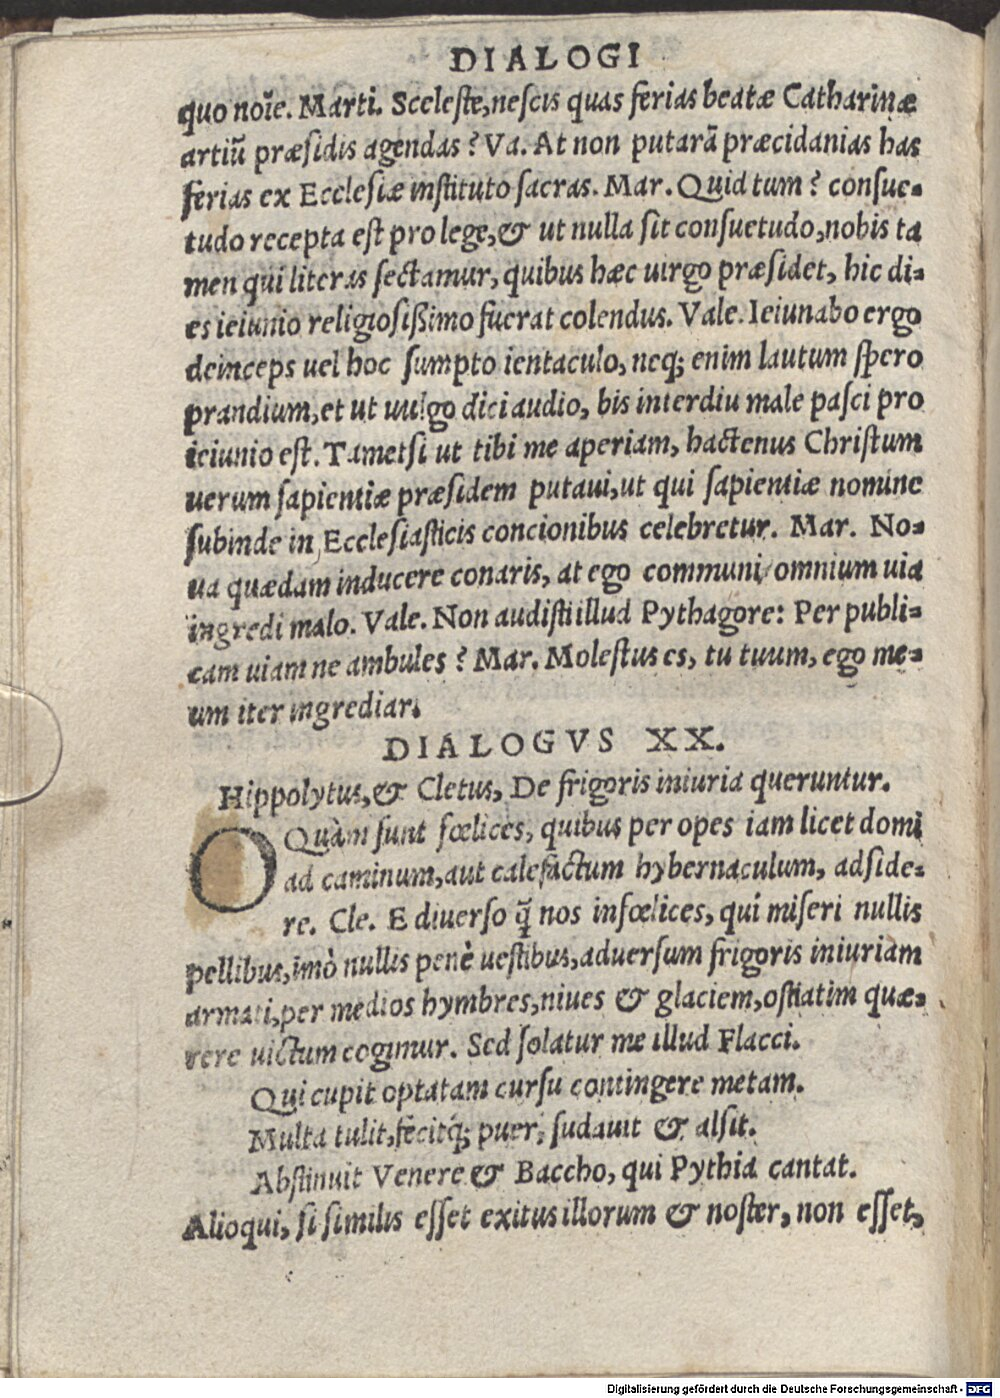 DIALOGI
quo noīe. Marti. Sceleste, nescis quas ferias beatæ Catharinæ
artiū præsidis agendas? Va. At non putarā præcidanias has
ferias ex Ecclesiæ instituto sacras. Mar. Quid tum? consue-
tudo recepta est pro lege, & ut nulla sit consuetudo, nobis ta
men qui literas sectamur, quibus hæc uirgo præsidet, hic di-
es ieiunio religiosißimo fuerat colendus. Vale. Ieiunabo ergo
deinceps uel hoc sumpto ientaculo, neq; enim lautum spero
prandium, et ut uulgo dici audio, bis interdiu male pasci pro
ieiunio est. Tametsi ut tibi me aperiam, hactenus Christum
uerum sapientiæ præsidem putaui, ut qui sapientiæ nomine
subinde in Ecclesiasticis concionibus celebretur. Mar. No-
ua quædam inducere conaris, at ego communi omnium uia
ingredi malo. Vale. Non audisti illud Pythagore: Per publi-
cam uiam ne ambules? Mar. Molestus es, tu tuum, ego me-
um iter ingrediar.
DIALOGVS XX.
Hippolytus, & Cletus, De frigoris iniuria queruntur.
O Quàm sunt fœlices, quibus per opes iam licet domi
ad caminum, aut calefactum hybernaculum, adside-
re. Cle. E diuerso q̄ nos infœlices, qui miseri nullis
pellibus, imò nullis penè uestibus, aduersum frigoris iniuriam
armati, per medios hymbres, niues & glaciem, ostiatim quæ-
rere uictum cogimur. Sed solatur me illud Flacci.
Qui cupit optatam cursu contingere metam.
Multa tulit, fecitq́; puer, sudauit & alsit.
Abstinuit Venere & Baccho, qui Pythia cantat.
Alioqui, si similis esset exitus illorum & noster, non esset,
Digitalisierung gefördert durch die Deutsche Forschungsgemeinschaft - DFG